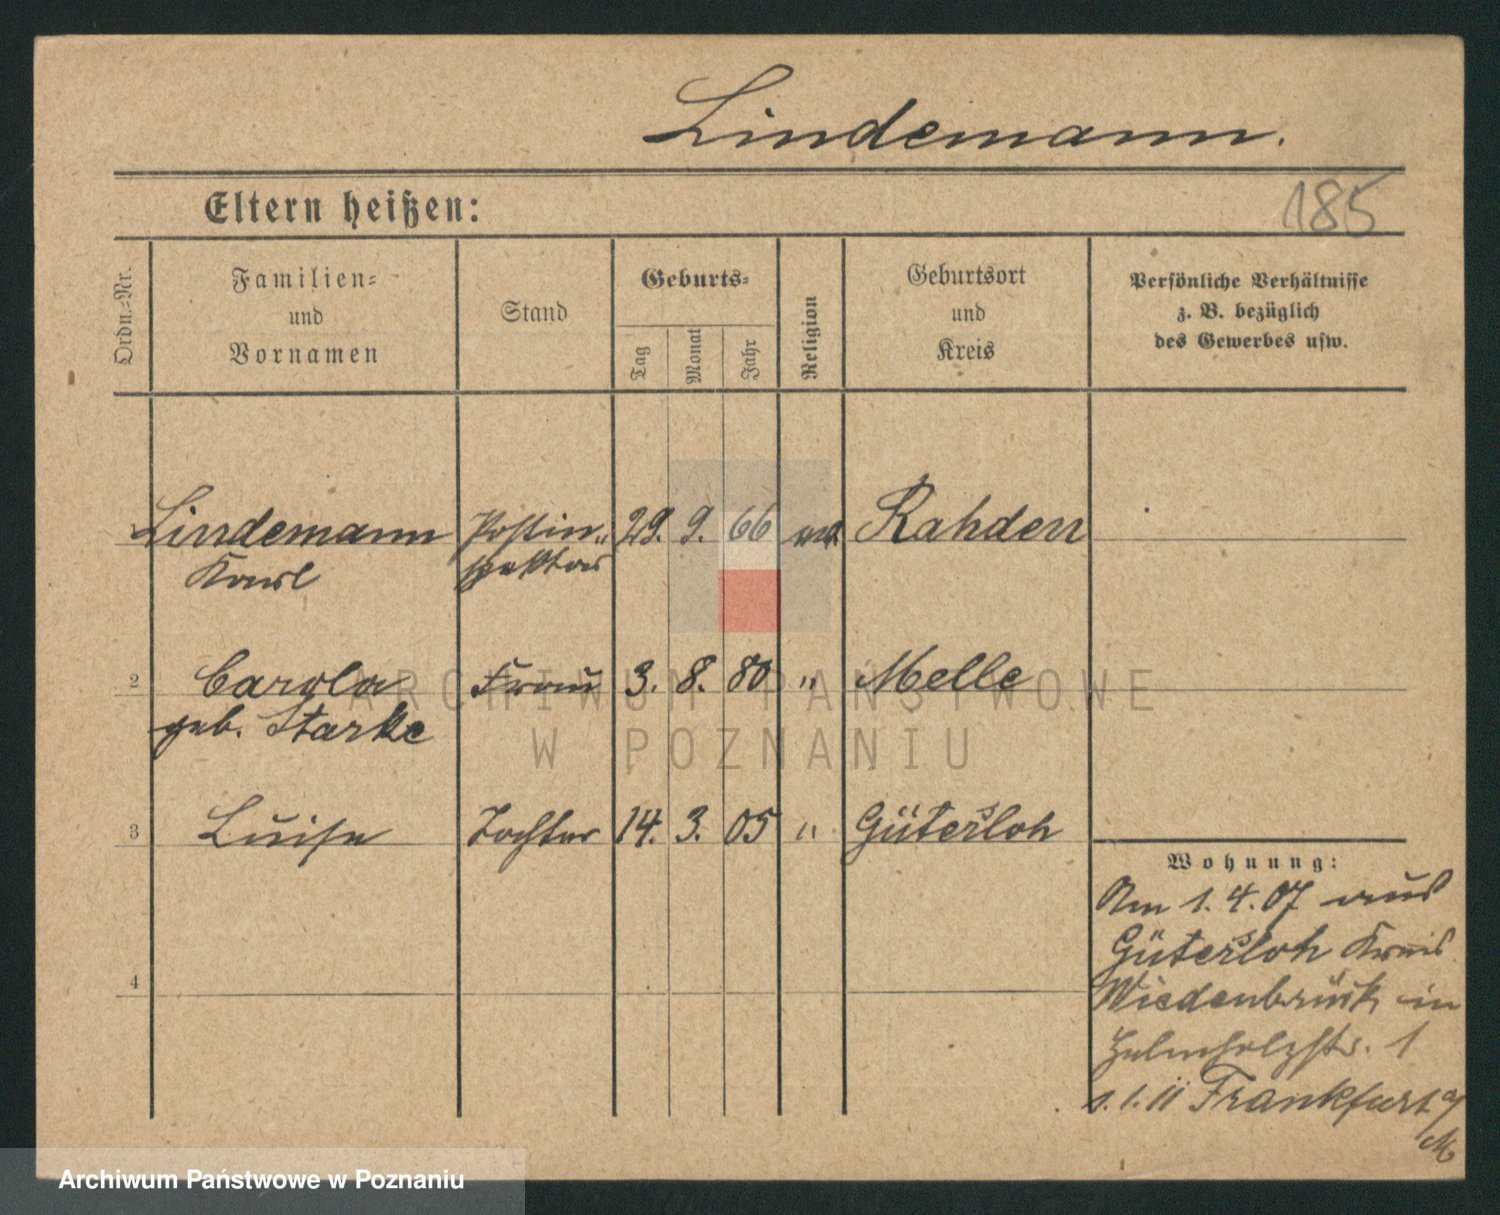 Lindemann.
185
Eltern heißen:
Ordn.-Nr.
Familien-
und
Vornamen
Stand
Geburts-
Tag
Monat
Jahr
Religion
Geburtsort
und
Kreis
Persönliche Verhältnisse
z. B. bezüglich
des Gewerbes usw.
Lindemann Postin- 29. 9. 66 ev. Rahden
Karl spektor
2 Carola Frau 3. 8. 80 " Melle
geb. Starke
3 Luise Tochter 14. 3. 05 " Gütersloh
Wohnung:
Am 1. 4. 07 aus
Gütersloh Kreis
4
Wiedenbrück in
Helmholzstr. 1
1. 1. 11 Frankfurt a/
M
ARCHIWUM PAŃSTWOWE
W POZNANIU
Archiwum Państwowe w Poznaniu